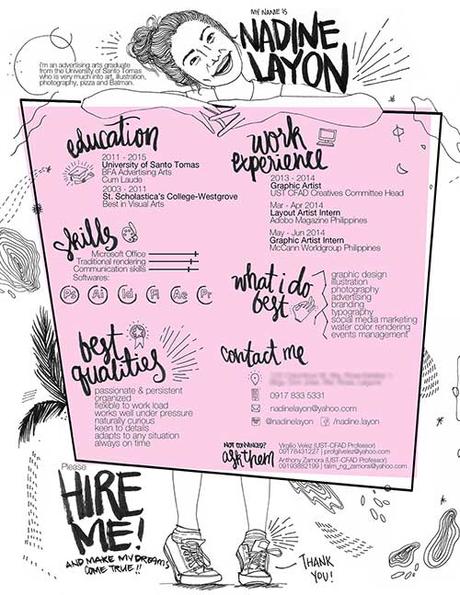 MY NAME IS
NADINE
LAYON
i'm an advertising arts graduate
from the University of Santo Tomas
who is very much into art, illustration,
photography, pizza and Batman.
education
2011 - 2015
University of Santo Tomas
BFA Advertising Arts
Cum Laude
2003 - 2011
St. Scholastica's College-Westgrove
Best in Visual Arts
skills
Microsoft Office
Traditional rendering
Communication skills
Softwares:
Ps Ai Id Fl Ae Pr
best
qualities
passionate & persistent
organized
flexible to work load
works well under pressure
naturally curious
keen to details
adapts to any situation
always on time
work
experience
2013 - 2014
Graphic Artist
UST CFAD Creatives Committee Head
Mar - Apr 2014
Layout Artist Intern
Adobo Magazine Philippines
May - Jun 2014
Graphic Artist Intern
McCann Worldgroup Philippines
what i do
best
graphic design
illustration
photography
advertising
branding
typography
social media marketing
water color rendering
events management
contact me
0917 833 5331
nadinelayon@yahoo.com
@nadinelayon
/nadine.layon
NOT CONVINCED?
ask them
Virgilio Velez (UST-CFAD Professor)
09178431227 | profgilvelez@yahoo.com
Anthony Zamora (UST-CFAD Professor)
09193882199 | talim_ng_zamora@yahoo.com
Please
HIRE
ME!
AND MAKE MY DREAMS
COME TRUE!!
THANK
YOU!